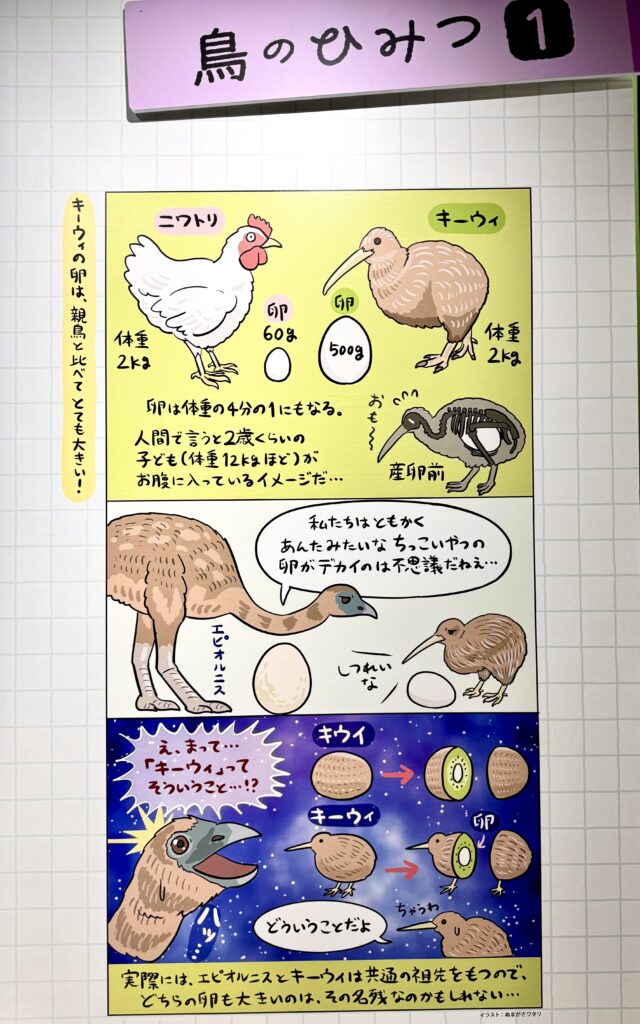 鳥のひみつ 1
キーウィの卵は、親鳥と比べてとても大きい！
ニワトリ
キーウィ
体重
2kg
卵
60g
卵
500g
体重
2kg
卵は体重の4分の1にもなる。
人間で言うと2歳くらいの
子ども(体重12kgほど)が
お腹に入っているイメージだ…
おも〜
産卵前
私たちはともかく
あんたみたいなちっこいやつの
卵がデカイのは不思議だねえ…
エピオルニス
しつれい
な
え、まって…
「キーウィ」って
そういうこと…!?
キウイ
キーウィ
卵
ハッ
ちゃうわ
どういうことだよ
実際には、エピオルニスとキーウィは共通の祖先をもつので、
どちらの卵も大きいのは、その名残なのかもしれない…
イラスト：ぬまがさワタリ